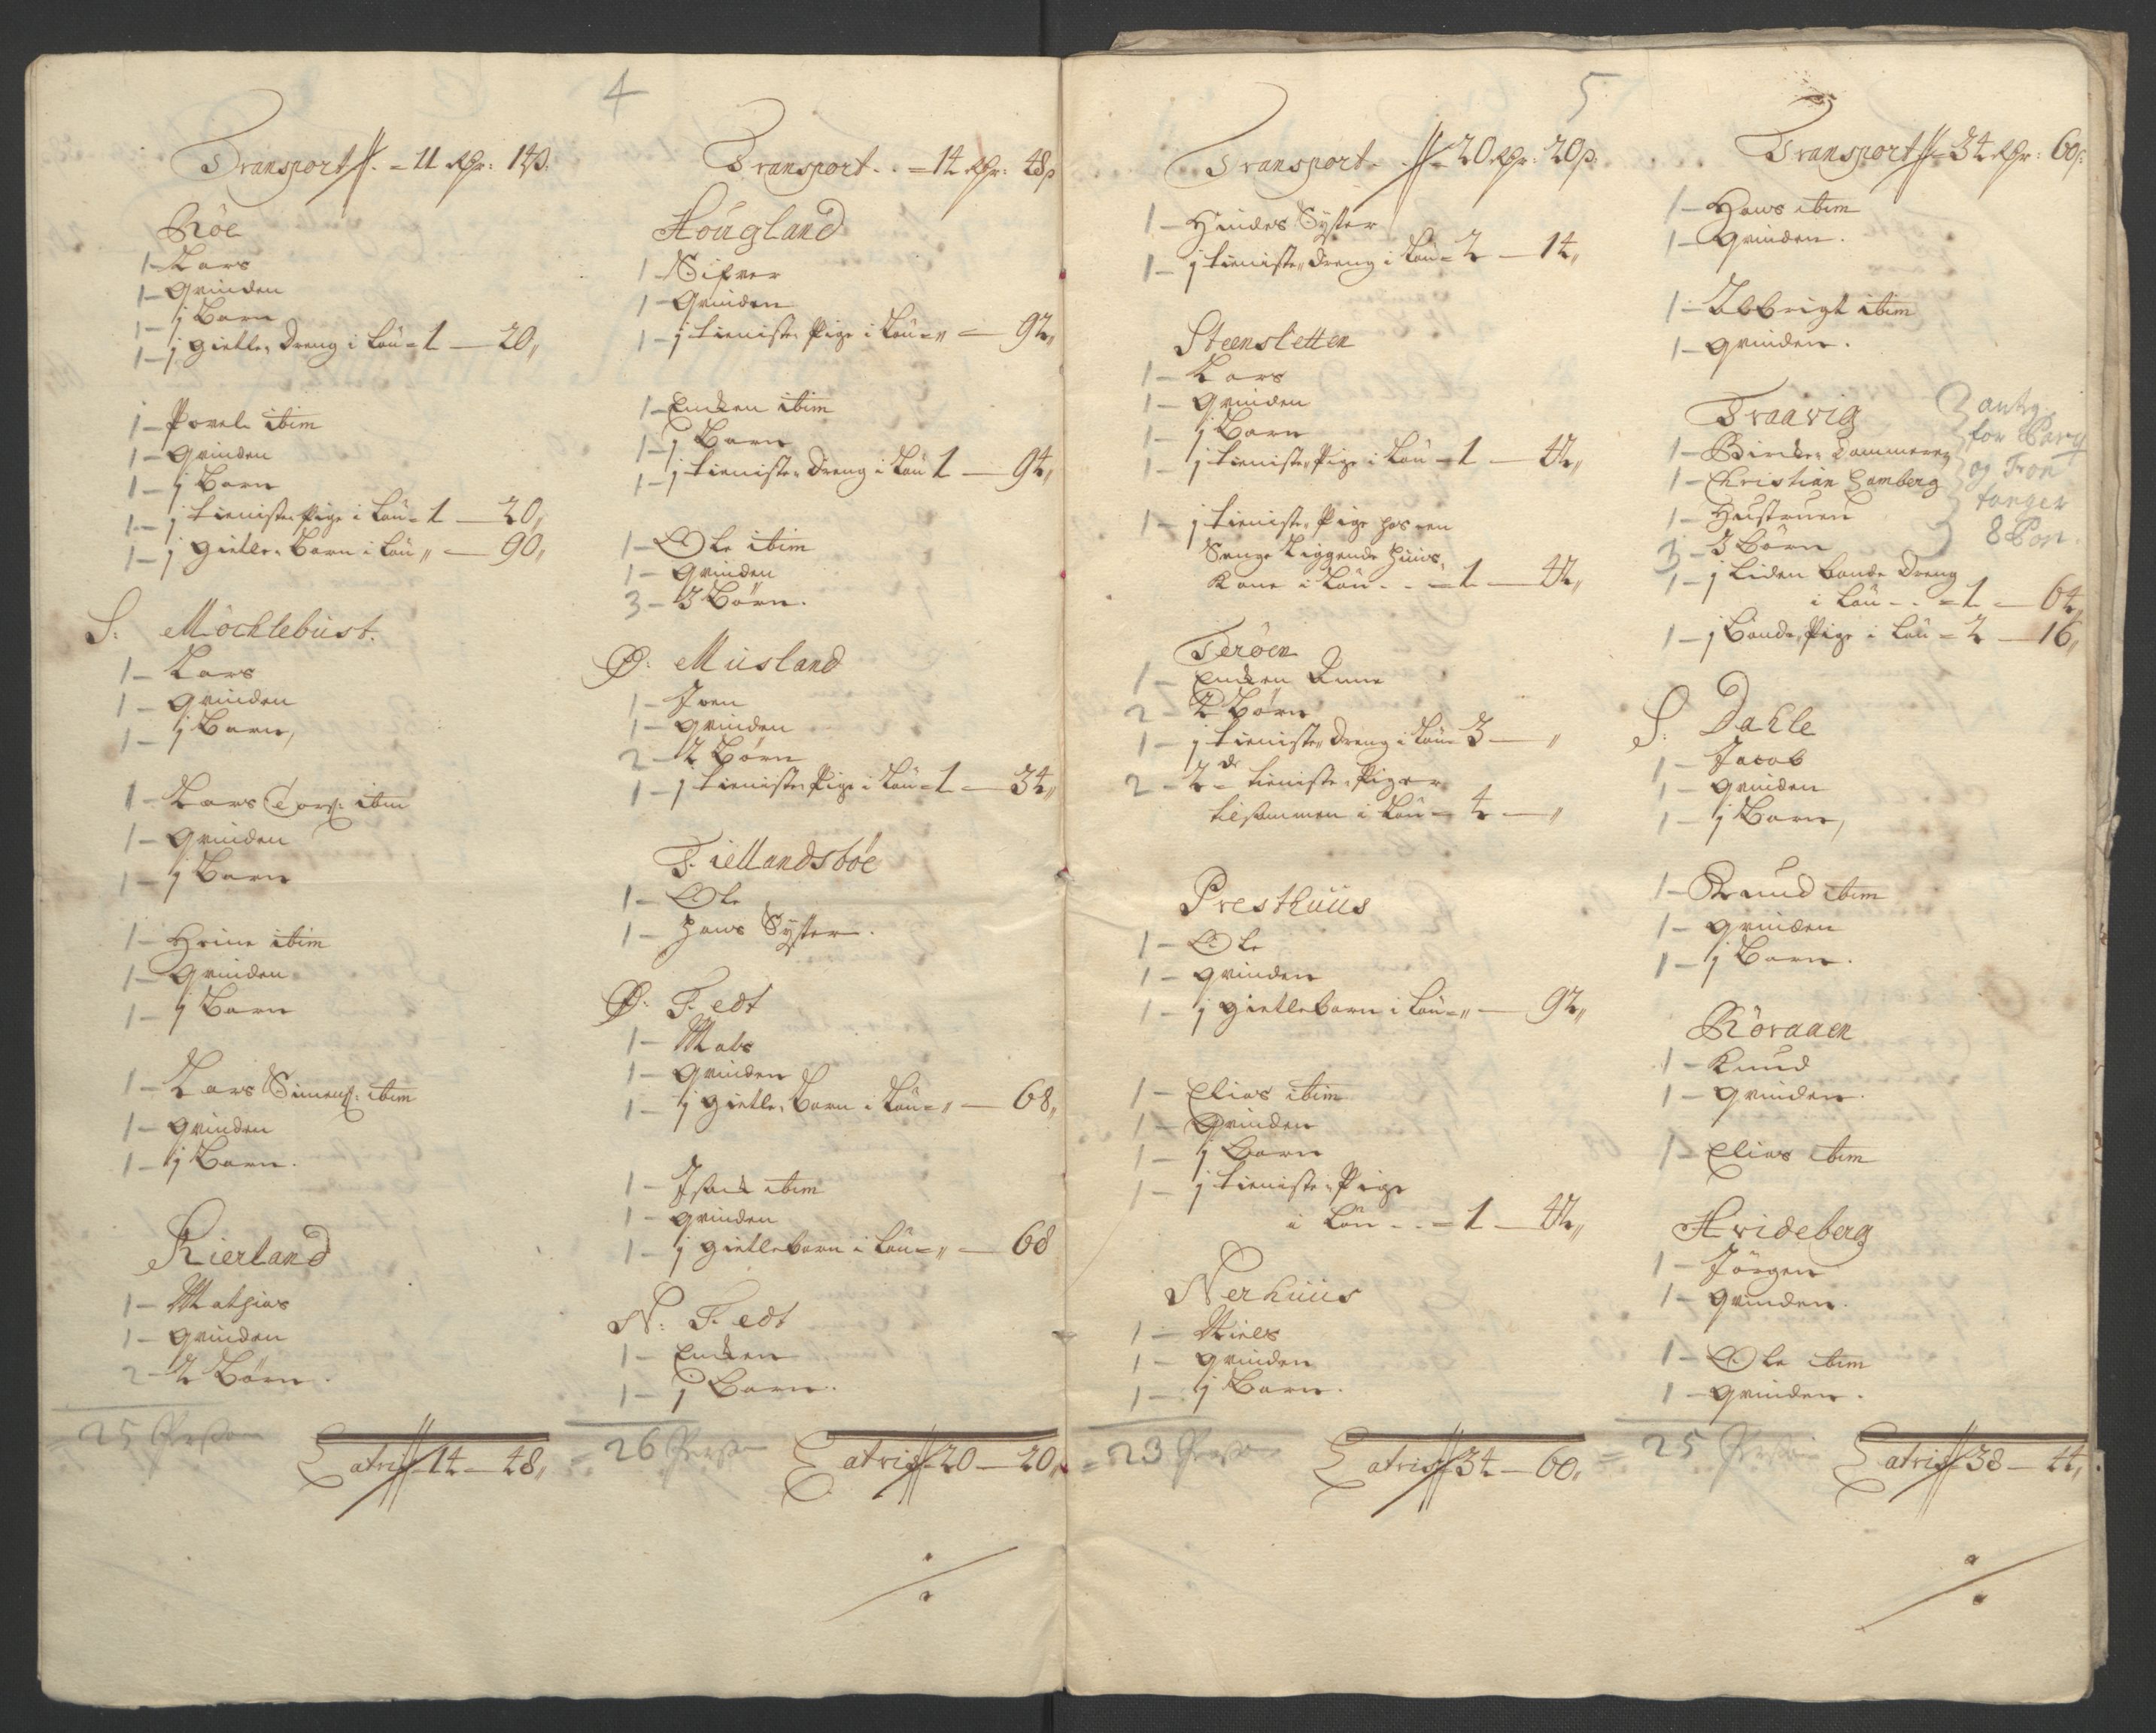 4
Transport . = 11 Rdr: 14 β.
Röe
1 – Lars
1 – Qvinden
1 – 1 Barn
1 – 1 gietle Dreng i Løn = 1 — 20 "
1 – Povel ibim
1 – Qvinden
1 – 1 Barn
1 – 1 tieniste Pige i Løn = 1 — 20 "
1 – 1 gietle Barn i Løn " — 90 "
S: Möchlebust.
1 – Lars
1 – Qvinden
1 – 1 Barn,
1 – Lars ibm
1 – Qvinden
1 – 1 Barn
1 – Heine ibim
1 – Qvinden
1 – 1 Barn
1 – Lars Simens: ibim
1 – Qvinden
1 – 1 Barn.
Kierland
1 – Mathias
1 – Qvinden
2 – 2 Börn.
= 25 Person
Latris 14 — 48 "
Transport . . = 14 Rdr: 48 β
Hougland
1 Sifver
1 – Qvinden
1 – 1 tieniste Pige i Løn = " — 92 "
1 – Encken ibim
1 – 1 Barn
1 – 1 tieniste Dreng i Løn 1 — 94 "
1 – Ole ibim
1 – Qvinden
3 – 3 Börn.
Ø: Musland
1 – Iven
1 – Qvinden
2 – 2 Börn
1 – 1 tieniste Pige i Løn = 1 — 34 "
Fiellandsböe
1 – Ole
1 – Hans Syster.
Ø: Fedt
1 – Mats
1 – Qvinden
1 – 1 gietle Barn i Løn = " — 68 "
1 – Isack ibim
1 – qvinden
1 – 1 gietlebarn i Løn = " — 68
N: Fedt
1 – Encken
1 – 1 Barn.
= 26 Person
Latris 20 — 20 "
5
Transport . = 20 Rdr: 20 β:
1 – Hindes Syster
1 – 1 tieniste Dreng i Løn = 2 — 14 "
Steensletten
1 – Lars
1 – Qvinden
1 – 1 Barn
1 – 1 tieniste Pige i Løn = 1 — 42 "
1 – 1 tieniste Pige hos en
Senge Liggende Huus
Kone i Løn . . = 1 — 42 "
Teröen
1 – Encken Anne
2 – 2 Börn
1 – 1 tieniste Dreng i Løn 3 — "
2 – 2de tieniste Piger
tilsammen i Løn = 4 — "
Presthuus
1 – Ole
1 – qvinden
1 – 1 gietlebarn i Løn = " — 92 "
1 – Elias ibim
1 – Qvinden
1 – 1 Barn
1 – 1 tieniste Pige
i Løn . . = 1 — 42 "
Nerhuus
1 – Niels
1 – qvinden
1 – 1 Barn.
= 23 Person
Latris 34 — 60 "
Transport = 34 Rdr: 60 β:
1 – Hans ibim
1 – qvinden.
1 – Ibbrigt ibim
1 – qvinden.
Traavig
1 – Bircke Dommeren
1 – Christian Hamberg
1 – Hustruen
3 – 3 Börn
1 – 1 liden bonde Dreng
i Løn . . = 1 — 64 "
1 – 1 bonde Pige i Løn = 2 — 16 "
antg.
for
og
8
S: Dahle
1 – Jacob
1 – qvinden
1 – 1 Barn,
1 – Knud ibim
1 – qvinden
1 – 1 Barn.
Röraaen
1 – Knud
1 – qvinden.
1 – Elias ibim
Hvideberg
1 – Jörgen
1 – qvinden.
1 – Ole ibim
1 – qvinden.
= 25 Person
Latris 38 — 44 "